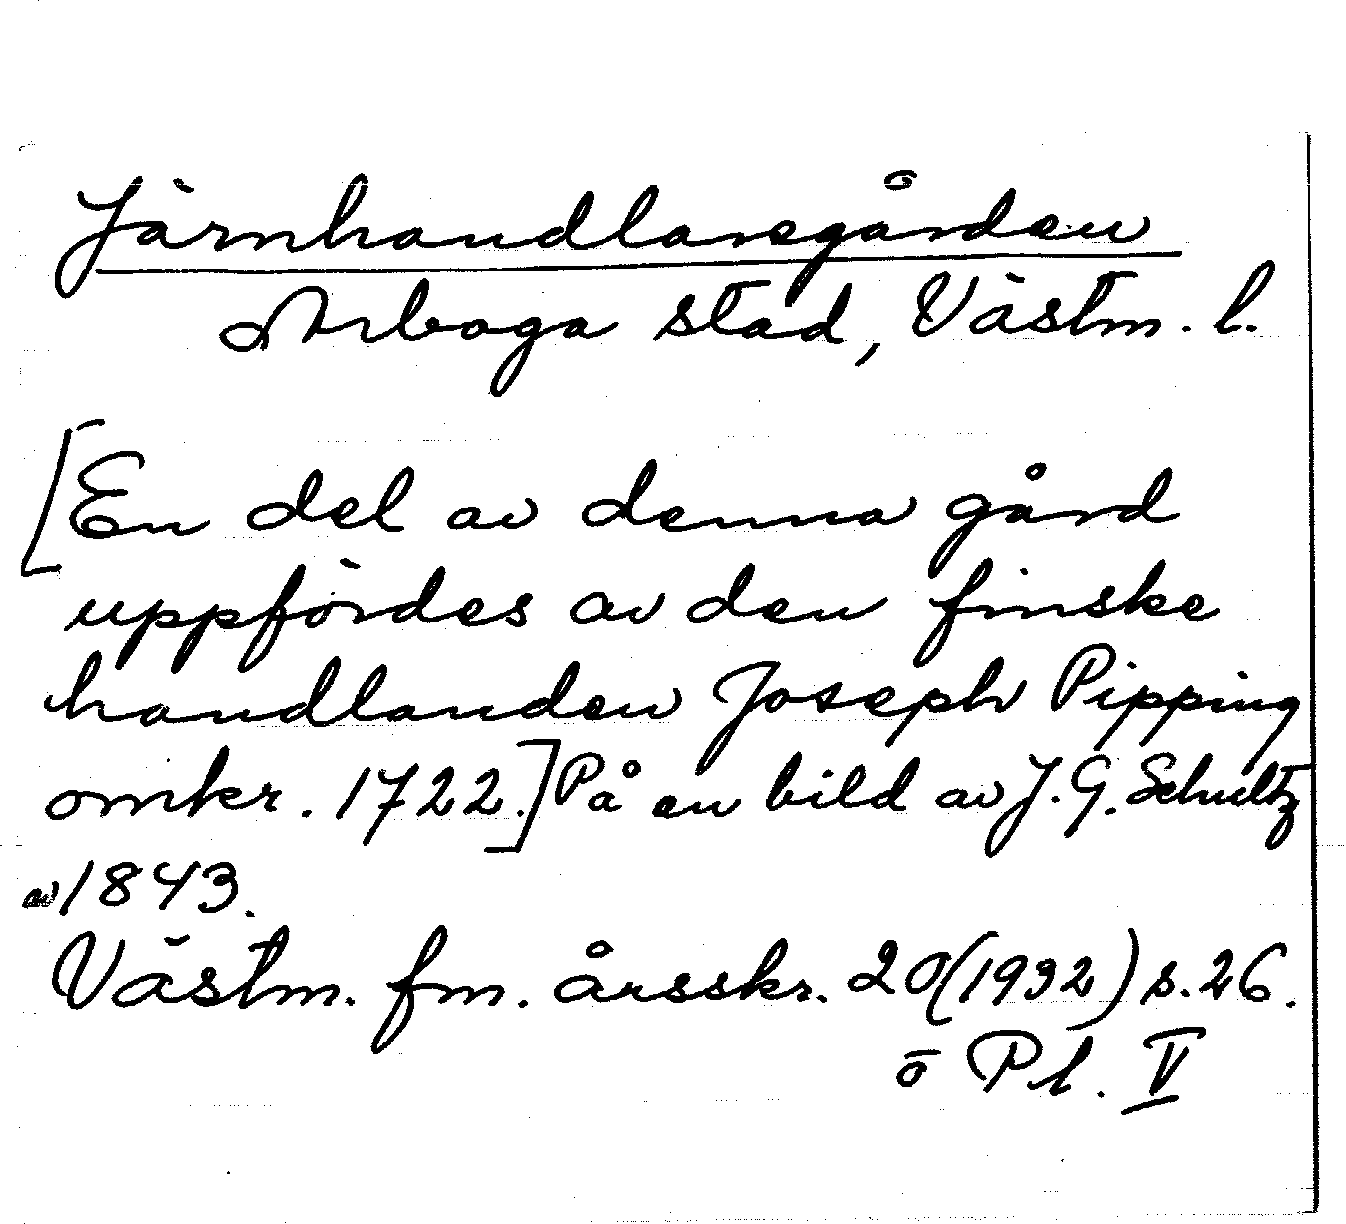 Järnhandlaregården
Arboga stad, Västm. l.
[En del av denna gård
uppfördes av den finske
handlanden Joseph Pipping
omkr. 1722.] På en bild av J. G. Schultz
av 1843.
Västm. fm. årsskr. 20 (1932) s. 26.
o Pl. V